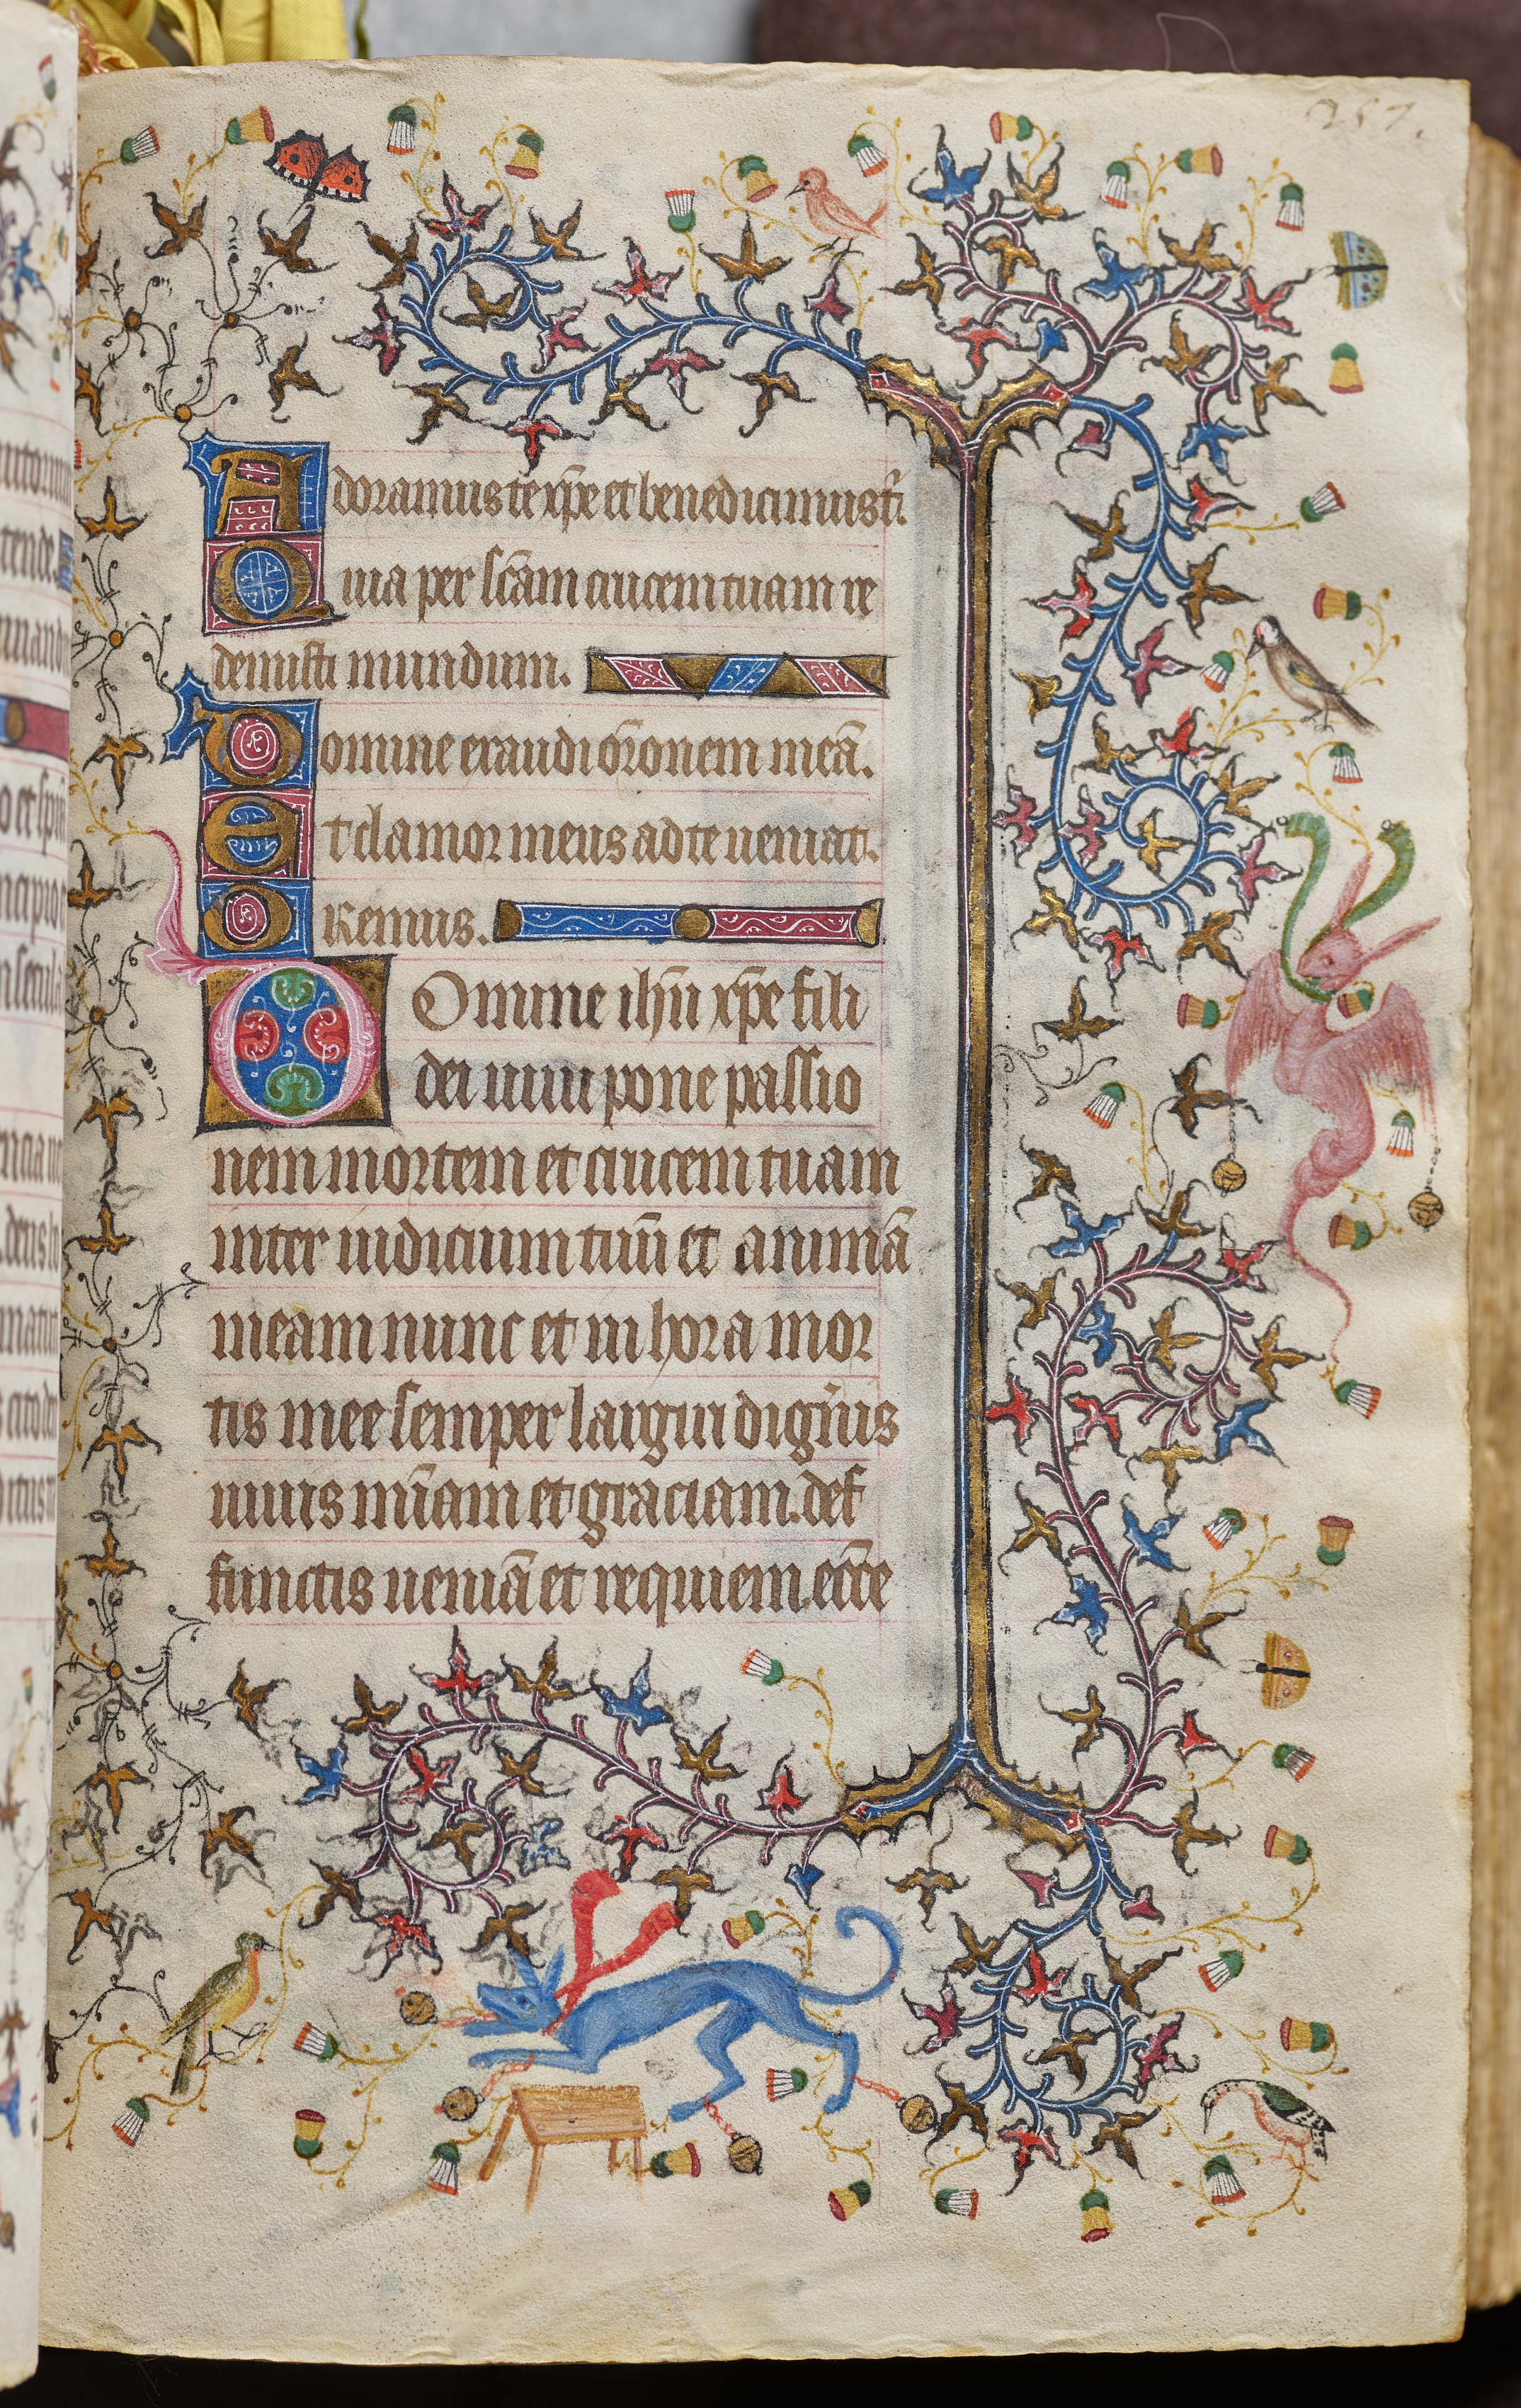 257.
Adoramus te xp̄e et benedicimus t̄.
Quia per sc̄am crucem tuam re
demisti mundum.
Domine exaudi or̄onem meā.
Et clamor meus ad te veniat.
Oremus.
Domine ihū xp̄e fili
dei vivi pone passio
nem mortem et crucem tuam
inter iudicium tuū et animā
meam nunc et in hora mor
tis mee semper largiri digńis
vivis mīam et graciam. def
functis veniā et requiem. ecc̄e